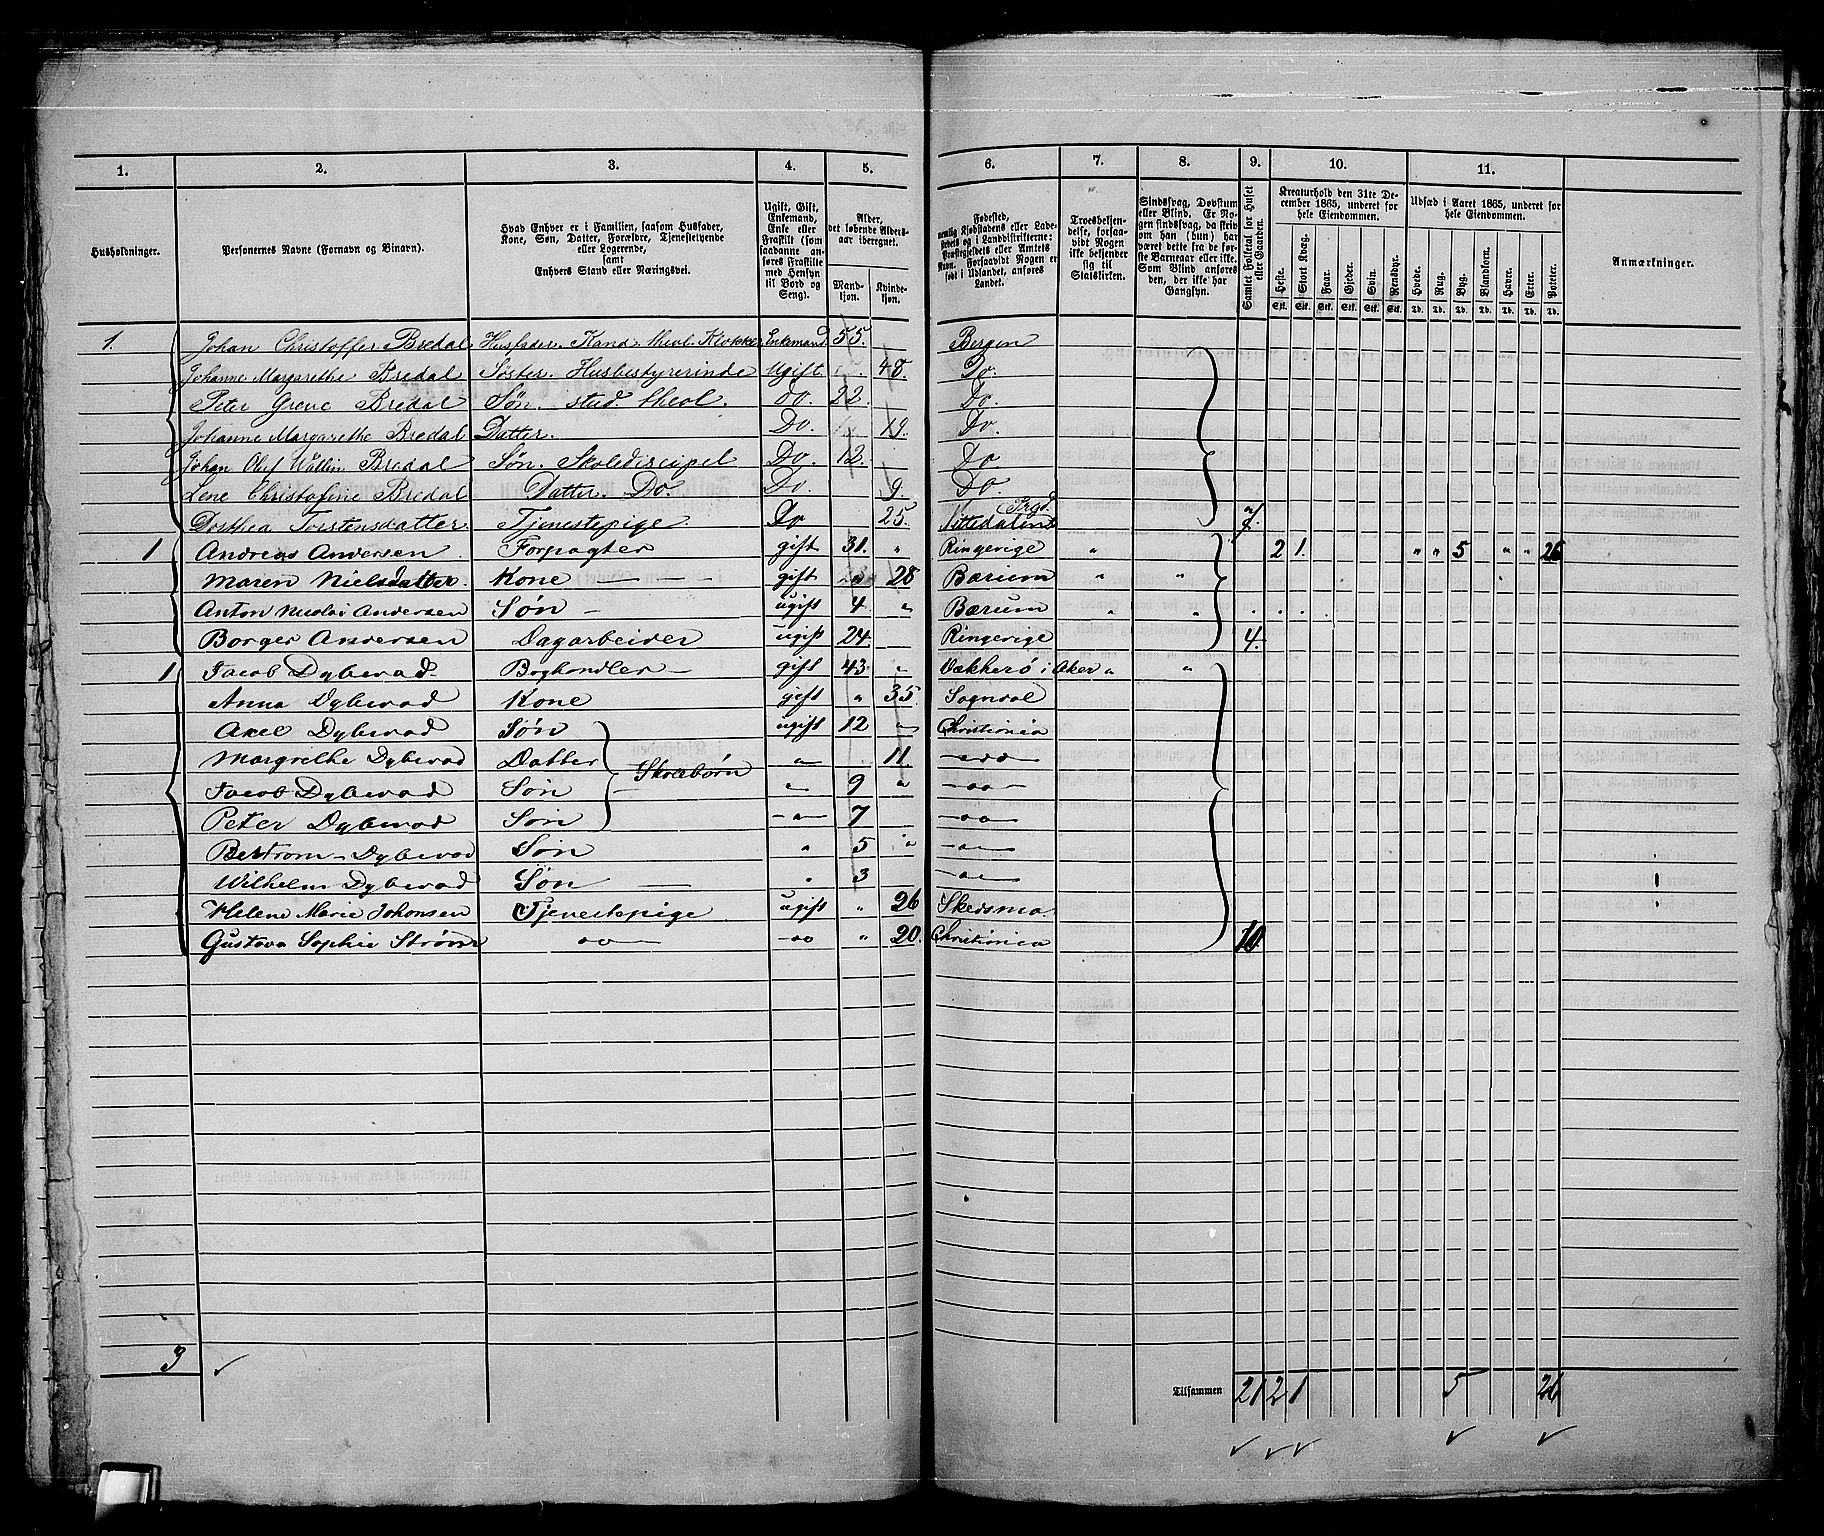 1. 2. 3. 4. 5. 6. 7. 8. 9. 10. 11.
Husholdninger.
Personernes Navne (Fornavn og Binavn).
Hvad Enhver er i Familien, saasom Husfader, Kone, Søn, Datter, Forældre, Tjenestetyende eller Logerende, samt Enhvers Stand eller Næringsvei.
Ugift, Gift, Enkemand, Enke eller Fraskilt (som saadanne anføres Fraskilte med Hensyn til Bord og Seng).
Alder, det løbende Aldersaar iberegnet.
Mandkjøn. Kvindekjøn.
Fødested, nemlig Kjøbstadens eller Ladestedets og i Landdistrikterne: Præstegjeldets eller Amtets Navn. Forsaavidt Nogen er født i Udlandet, anføres Landet.
Troesbekjendelse, forsaavidt Nogen ikke bekjender sig til Statskirken.
Sindssvag, Døvstum eller Blind. Er Nogen sindssvag, da skrives om han (hun) har været dette fra de første Barneaar eller ikke. Som Blind anføres den, der ikke har Gangsyn.
Samlet Folketal for Huset eller Gaarden.
Kreaturhold den 31te December 1865, underet for hele Eiendommen.
Heste. Stort Kvæg. Faar. Gjeder. Svin. Rensdyr.
Stk. Stk. Stk. Stk. Stk. Stk.
Udsæd i Aaret 1865, underet for hele Eiendommen.
Hvede. Rug. Byg. Blandkorn. Havre. Erter. Poteter.
Td. Td. Td. Td. Td. Td. Td.
Anmærkninger.
1. Johan Christoffer Bredal Husfader. Kand. theol. Klokker Enkemand 55. Bergen
Johanne Margarethe Bredal Søster. Husbestyrerinde Ugift. 48. Do.
Peter Greve Bredal Søn. stud. theol. Do. 22. Do.
Johanne Margarethe Bredal Datter. Do. 19. Do.
Johan Olaf Wallin Bredal Søn. Skolediscipel Do. 12. Do
Lene Christofine Bredal Datter. Do. Do. 9. Do.
Dorthea Torstensdatter Tjenestepige. Do 25. Nittedalens Prgd. 7.
1 Andreas Andersen Forpagter gift 31. " Ringerige " 2 1. " " 5 " " 26
Maren Nielsdatter. Kone — — gift " 28 Bærum " "
Anton Nicolai Andersen Søn — ugift 4 " Bærum " "
Borger Andersen Dagarbeider ugift 24. Ringerige 4.
1 Jacob Dybwad Boghandler — gift 43. " Vækkerø i Aker " "
Anna Dybwad Kone gift " 35. Sogndal
Axel Dybwad Søn ugift 12 " Christiania
Margrethe Dybwad Datter Skolebørn " 11. —do—
Jacob Dybwad Søn " 9 " —do—
Peter Dybwad Søn —"— 7 —do—
Bertram Dybwad Søn " 5 " —"—
Wilhelm Dybwad Søn — " 3 —"—
Helene Marie Johansen Tjenestepige ugift " 26 Skedsmo.
Gustava Sophie Strøm —do— —do " 20. Christiania 10.
3 ✓
Tilsammen 21 2 1 5 26
✓ ✓ ✓ ✓ ✓